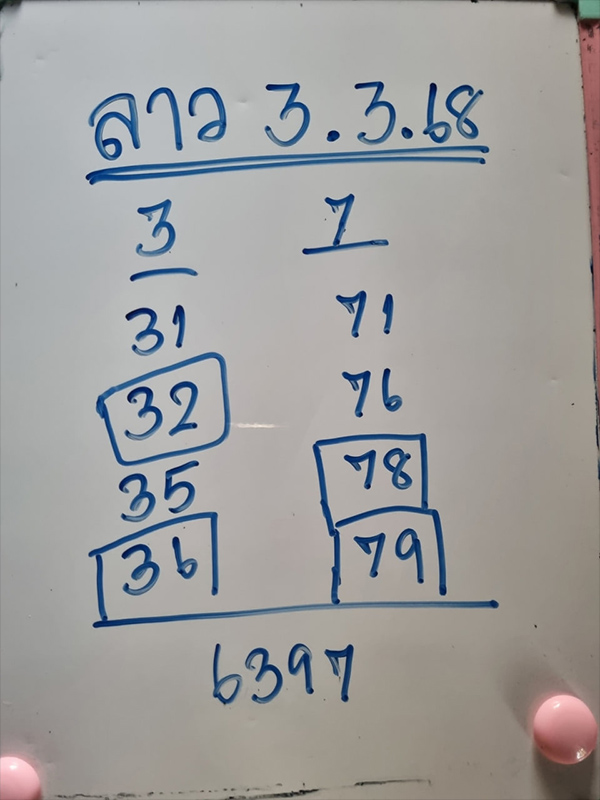 ลาว 3.3.68
3 7
31 71
32 76
35 78
36 79
6397